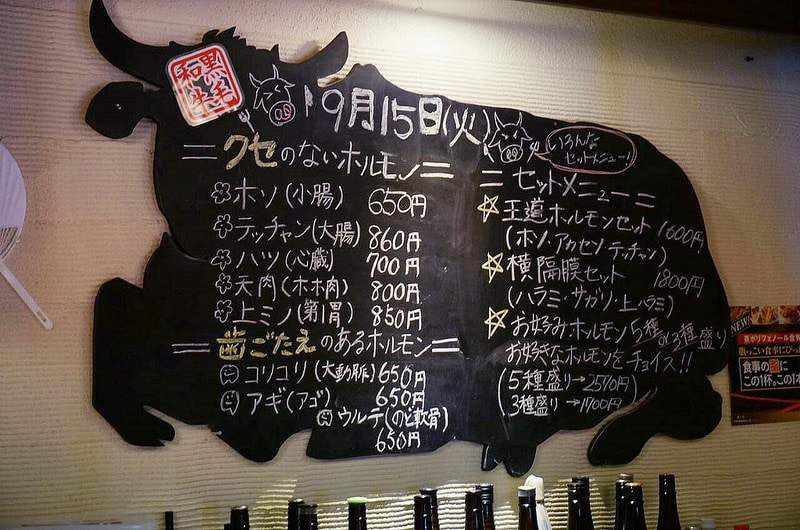 黒毛
和牛
9月15日(火)
=クセのないホルモン=
ホソ(小腸) 650円
テッチャン(大腸) 860円
ハツ(心臓) 700円
天肉(ホホ肉) 800円
上ミノ(第1胃) 850円
=歯ごたえのあるホルモン=
コリコリ(大動脈) 650円
アギ(アゴ) 650円
ウルテ(のど軟骨)
650円
いろんな
セットメニュー!
=セットメニュー=
☆王道ホルモンセット 1600円
(ホソ・アカセン・テッチャン)
☆横隔膜セット 1800円
(ハラミ・サガリ・上ハラミ)
☆お好みホルモン5種or3種盛り
お好きなホルモンをチョイス!!
(5種盛り→2570円)
(3種盛り→1700円)
NEW
茶ポリフェノール含有
脂っこい食事にぴっ
食事の脂に
この1杯。この1本